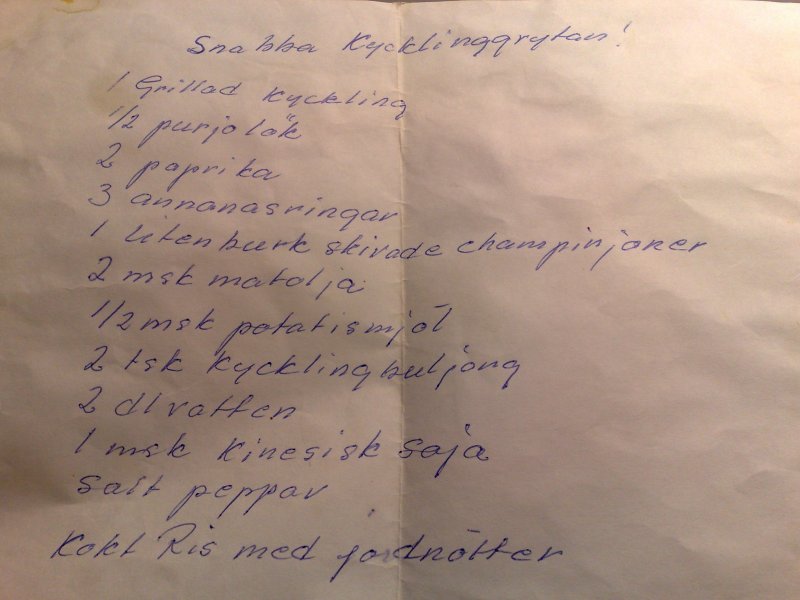 Snabba Kycklinggrytan!
1 Grillad Kyckling
1/2 purjolök
2 paprika
3 annanasringar
1 liten burk skivade champinjoner
2 msk matolja
1/2 msk potatismjöl
2 tsk Kycklingbuljong
2 dl vatten
1 msk Kinesisk soja
Salt peppar
Kokt Ris med jordnötter